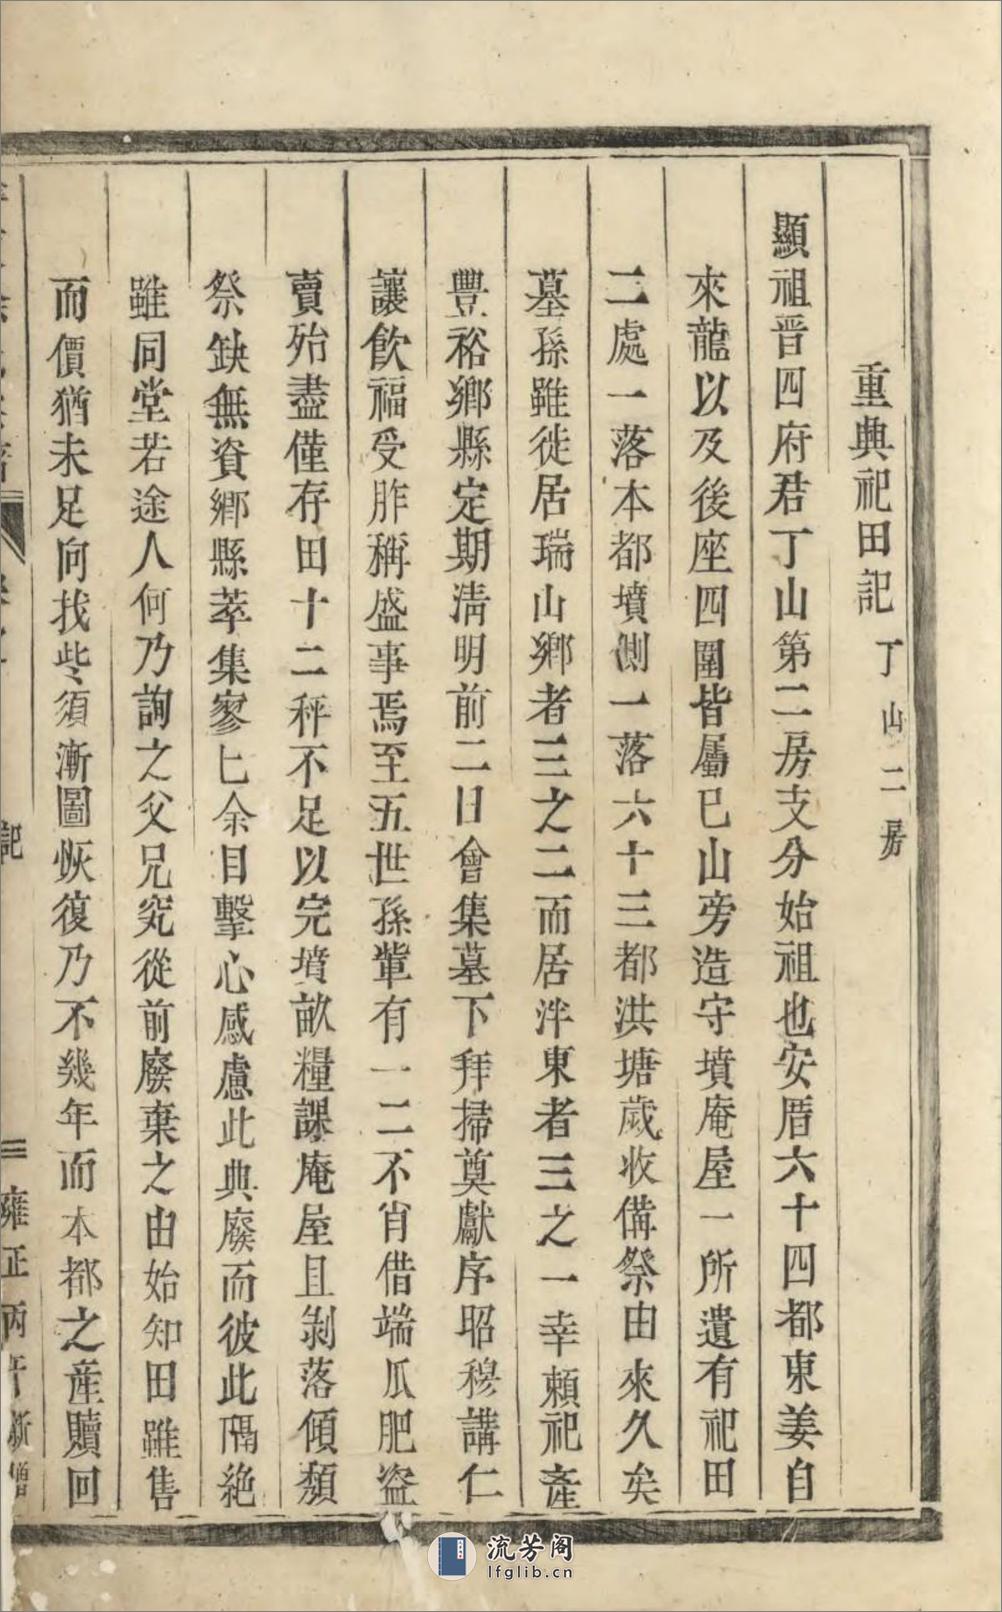 重典祀田記 丁山二房
顯祖晋四府君丁山第二房支分始祖也安厝六十四都東姜自
來龍以及後座四圍皆屬己山旁造守墳庵屋一所遺有祀田
二處一落本都墳側一落六十三都洪塘歲收備祭由來久矣
墓孫雖徙居瑞山鄉者三之二而居泮東者三之一幸賴祀產
豐裕鄉縣定期淸明前二日會集墓下拜掃奠獻序昭穆講仁
讓飮福受胙稱盛事焉至五世孫輩有一二不肖借端瓜肥盜
賣殆盡僅存田十二秤不足以完墳畝糧課庵屋且剝落傾頽
祭缺無資鄉縣萃集寥匕余目擊心感慮此典廢而彼此隔絶
雖同堂若途人何乃詢之父兄究從前廢棄之由始知田雖售
而價猶未足向找些須漸圖恢復乃不幾年而本都之產贖回
記 雍正丙午新增
流芳阁
lfglib.cn